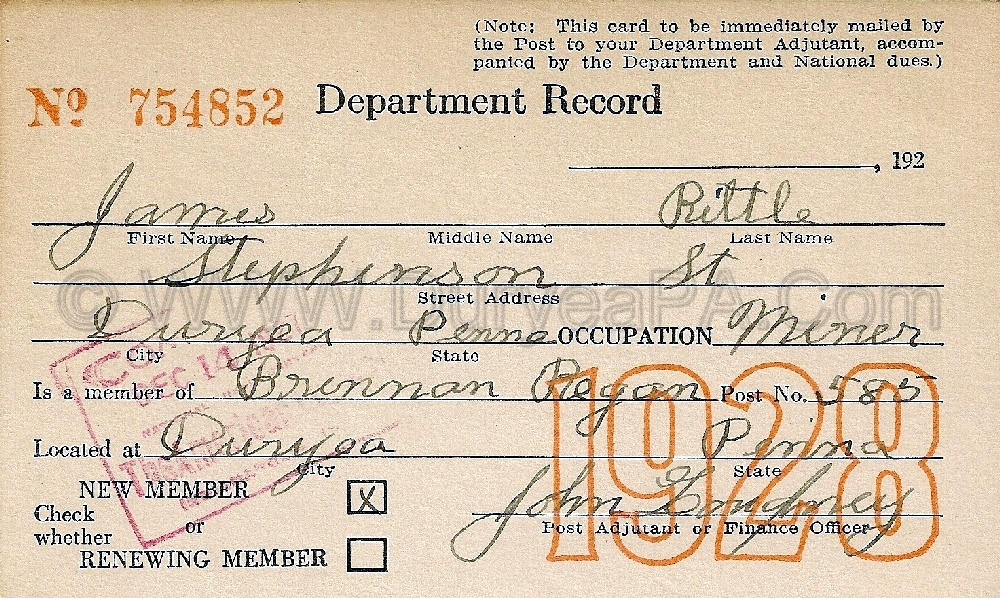 (Note: This card to be immediately mailed by
the Post to your Department Adjutant, accom-
panied by the Department and National dues.)
Nº 754852 Department Record
, 192
James Rittle
First Name Middle Name Last Name
Stephenson St
Street Address
© Www.DuryeaPA.Com
Duryea Penna OCCUPATION Miner
City State
DEC 14
Is a member of Brennan Regan Post No. 585
Located at Duryea Penna
City State
1928
NEW MEMBER X
Check
whether or
John
Post Adjutant or Finance Officer
RENEWING MEMBER